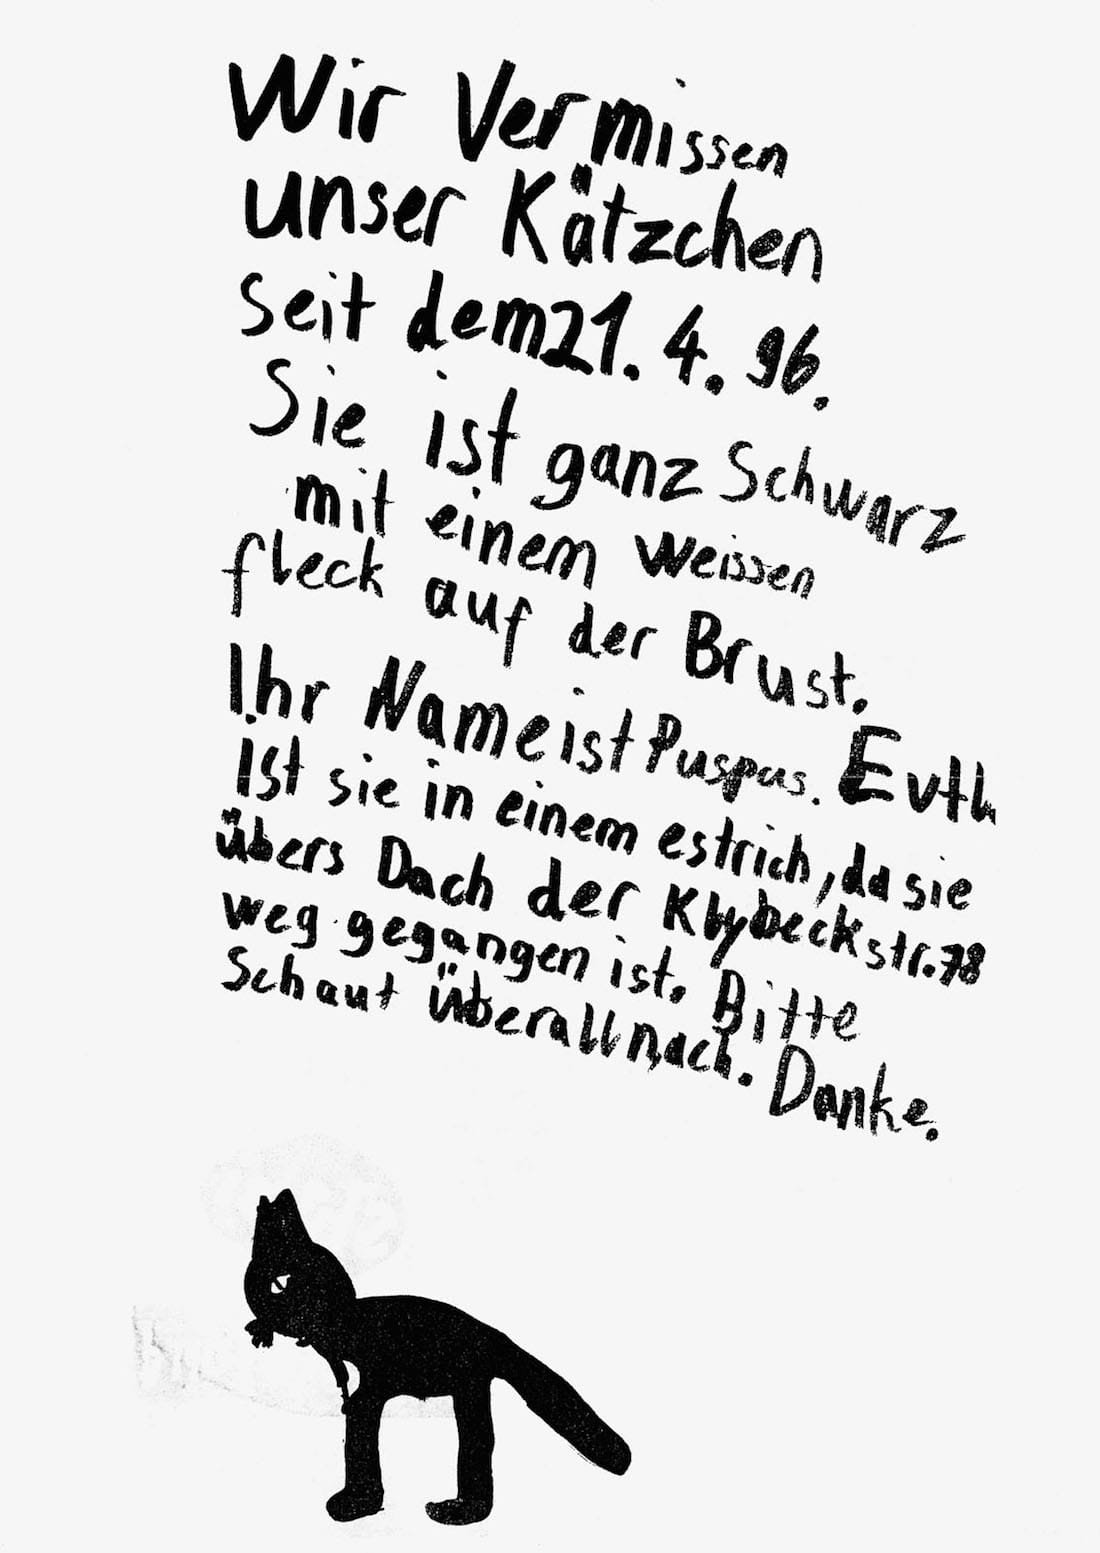 Wir Vermissen
unser Kätzchen
seit dem 21. 4. 96.
Sie ist ganz Schwarz
mit einem weissen
fleck auf der Brust.
Ihr Name ist Puspas. Evtl.
ist sie in einem estrich, da sie
übers Dach der Klybeckstr. 78
weg gegangen ist. Bitte
Schaut überall nach. Danke.